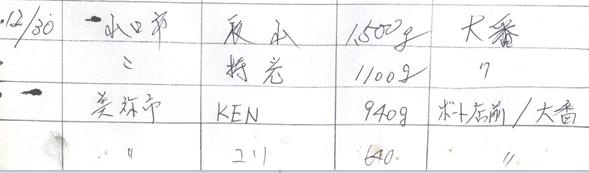 12/30 山口市 秋山 1,500g 大番
〃 持光 1100g 〃
美祢市 KEN 940g ボート店前/大番
〃 コリ 640. 〃